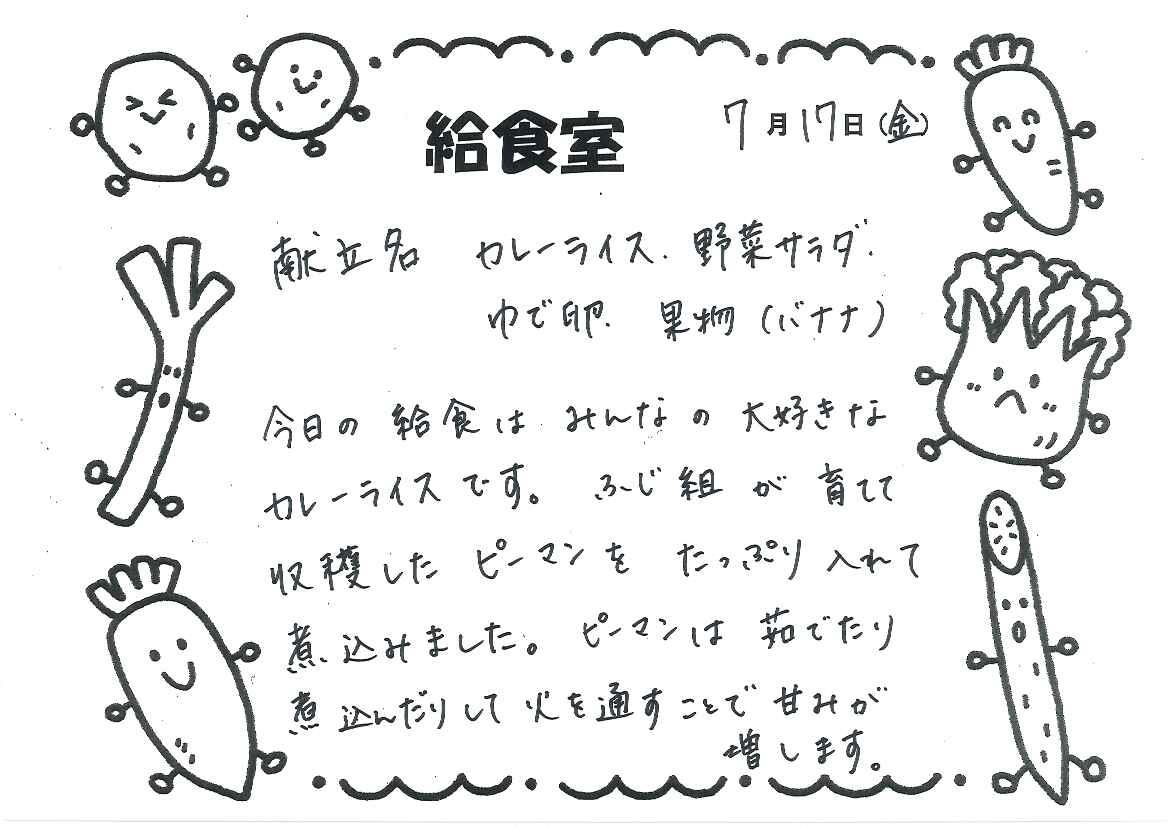 給食室
7月17日(金)
献立名 カレーライス.野菜サラダ.
ゆで卵. 果物(バナナ)
今日の給食はみんなの大好きな
カレーライスです。ふじ組が育てて
収穫したピーマンをたっぷり入れて
煮込みました。ピーマンは茹でたり
煮込んだりして火を通すことで甘みが
増します。